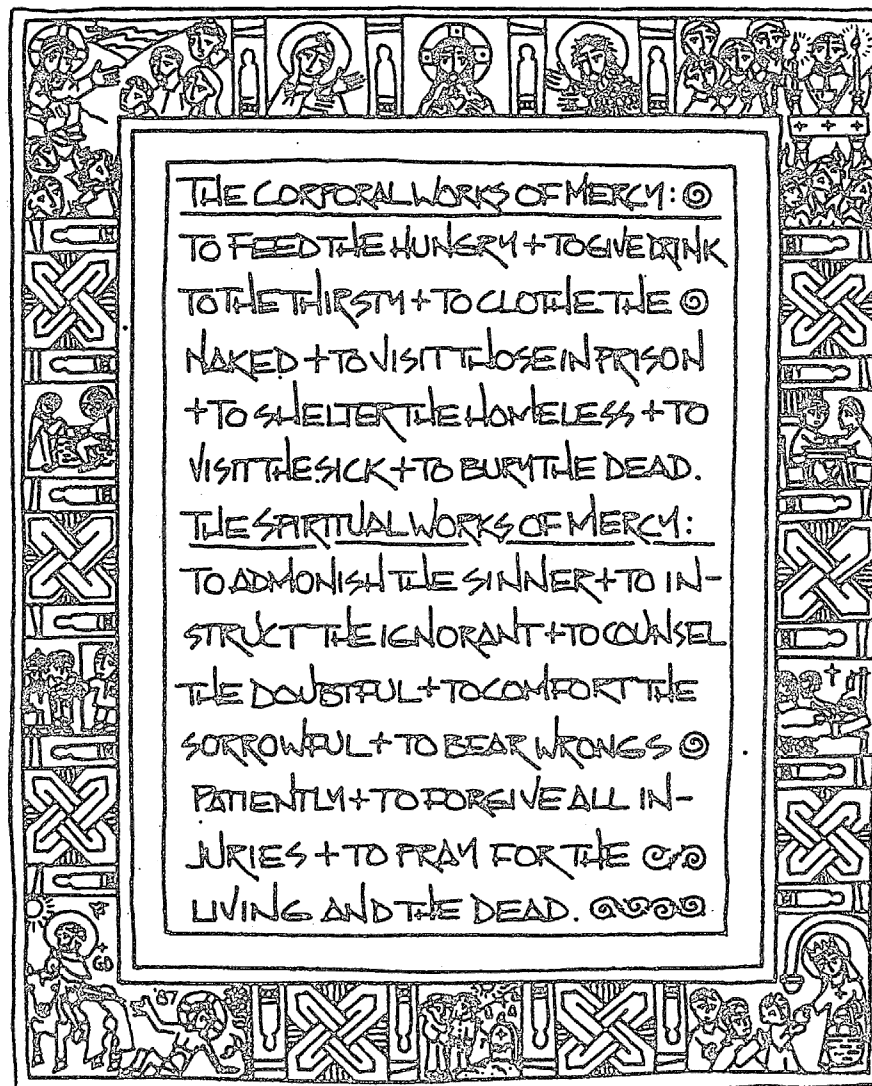 THE CORPORAL WORKS OF MERCY:
TO FEED THE HUNGRY + TO GIVE DRINK
TO THE THIRSTY + TO CLOTHE THE
NAKED + TO VISIT THOSE IN PRISON
+ TO SHELTER THE HOMELESS + TO
VISIT THE SICK + TO BURY THE DEAD.
THE SPIRITUAL WORKS OF MERCY:
TO ADMONISH THE SINNER + TO IN-
STRUCT THE IGNORANT + TO COUNSEL
THE DOUBTFUL + TO COMFORT THE
SORROWFUL + TO BEAR WRONGS
PATIENTLY + TO FORGIVE ALL IN-
JURIES + TO PRAY FOR THE
LIVING AND THE DEAD.
'87